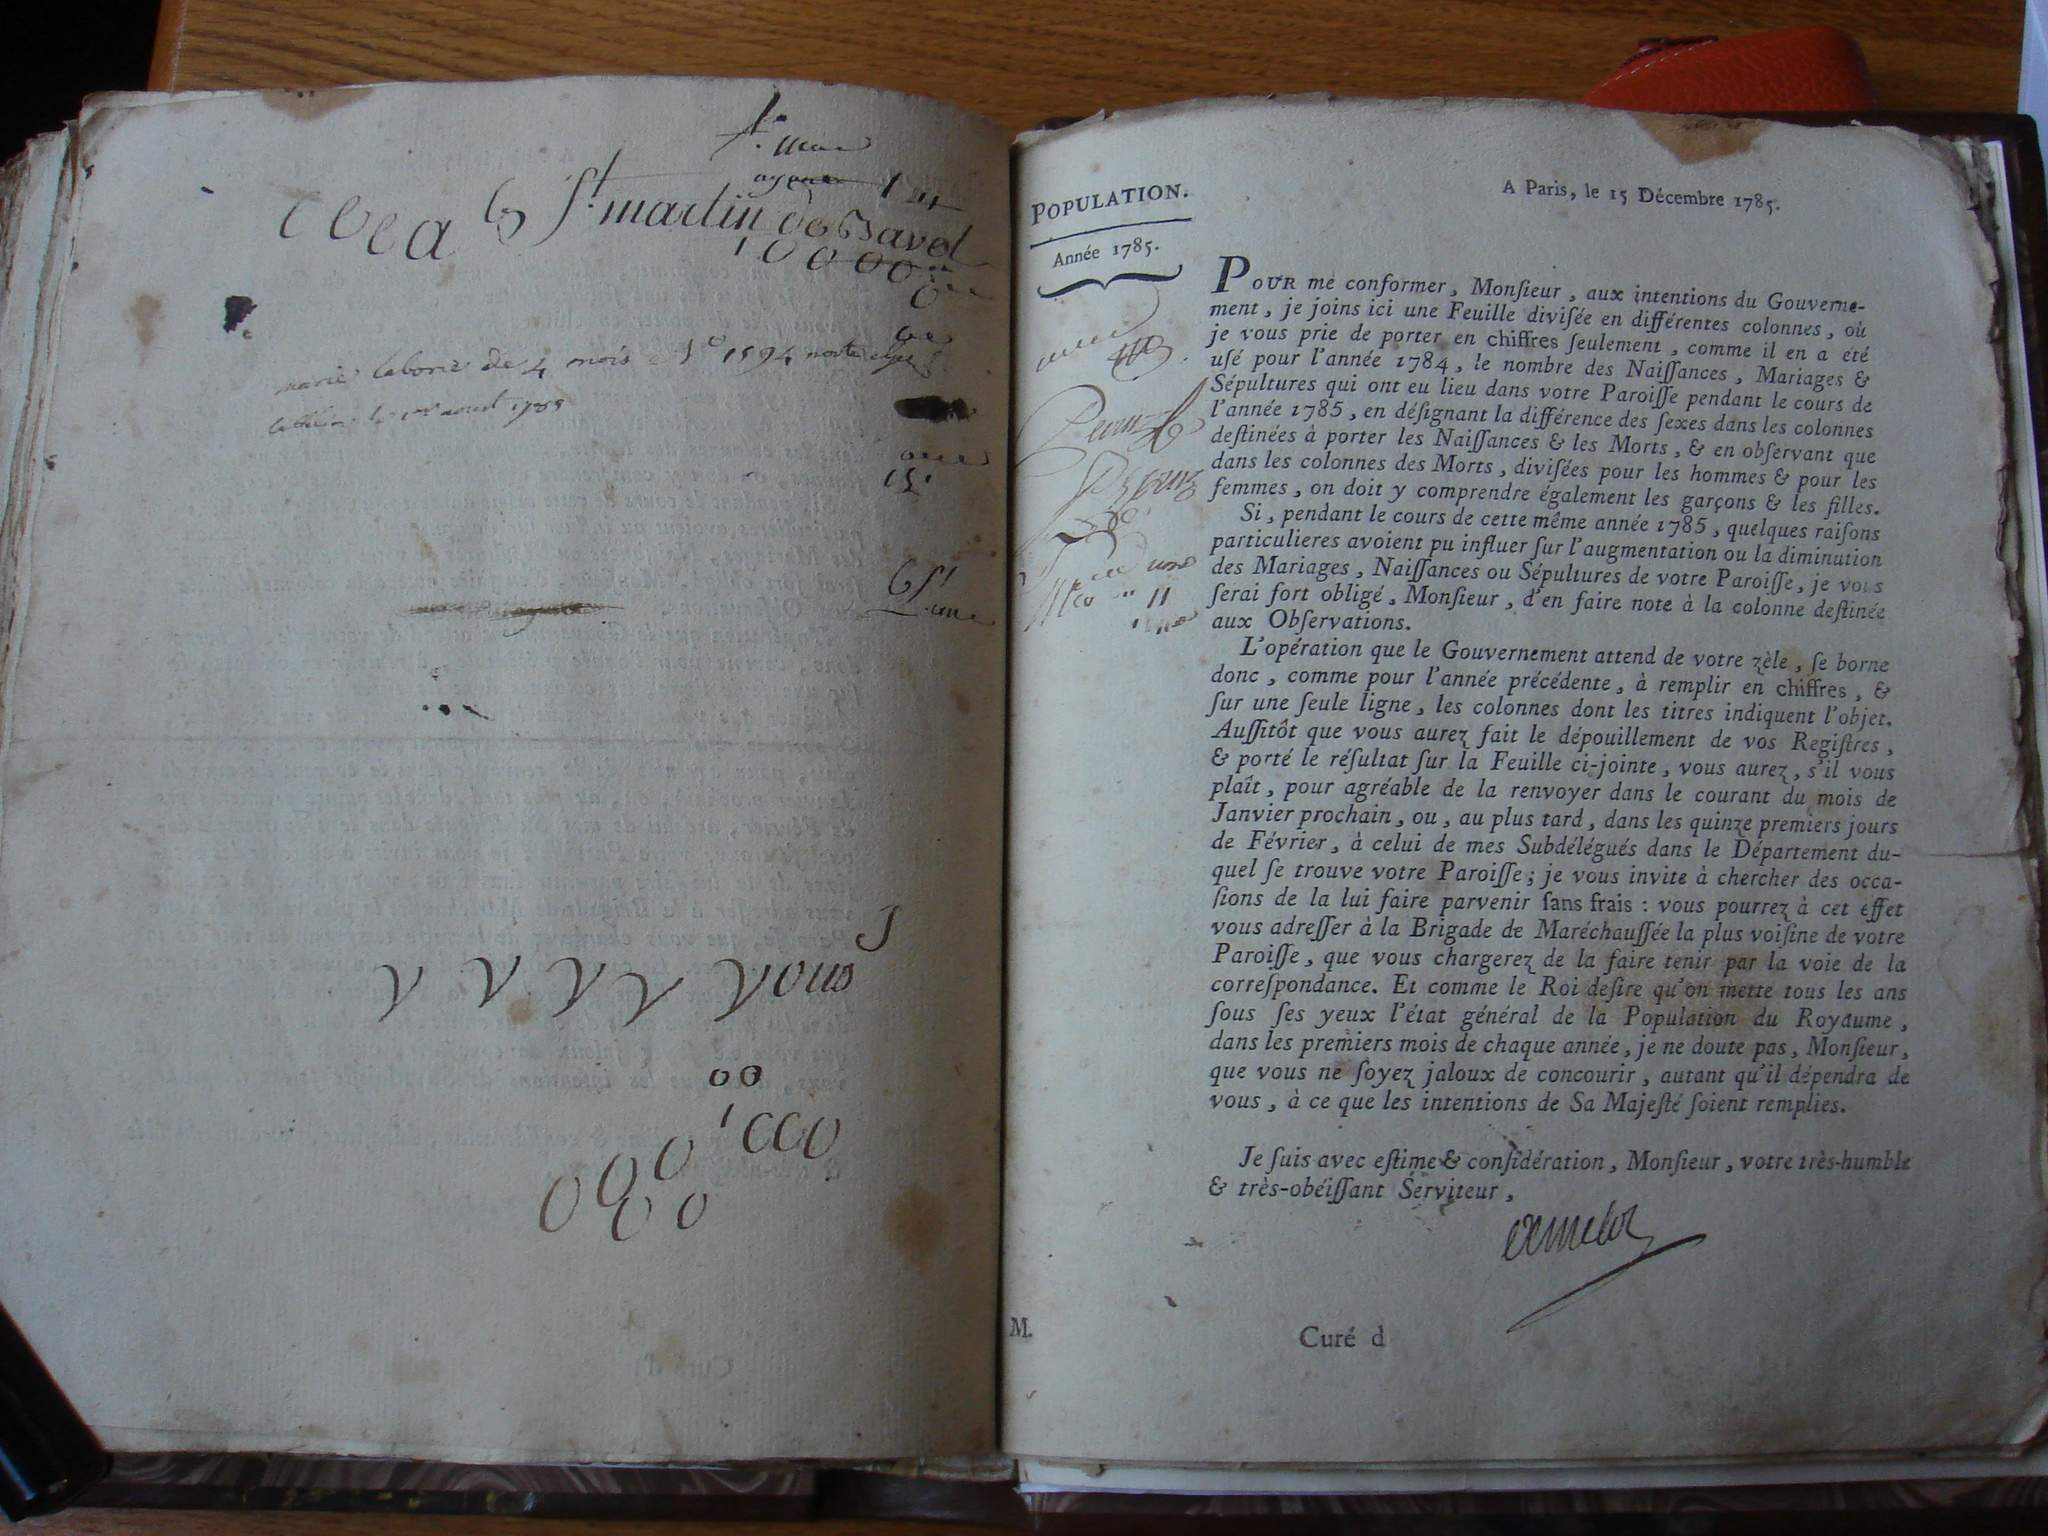 St martin de Bavel
10000
marie laborie de 4 mois
1789
V V V V vous
00
1000
POPULATION.
Année 1785.
A Paris, le 15 Décembre 1785.
POUR me conformer, Monſieur, aux intentions du Gouverne-
ment, je joins ici une Feuille diviſée en différentes colonnes, où
je vous prie de porter en chiffres ſeulement, comme il en a été
uſé pour l'année 1784, le nombre des Naiſſances, Mariages &
Sépultures qui ont eu lieu dans votre Paroiſſe pendant le cours de
l'année 1785, en déſignant la différence des ſexes dans les colonnes
deſtinées à porter les Naiſſances & les Morts, & en obſervant que
dans les colonnes des Morts, diviſées pour les hommes & pour les
femmes, on doit y comprendre également les garçons & les filles.
Si, pendant le cours de cette même année 1785, quelques raiſons
particulieres avoient pu influer ſur l'augmentation ou la diminution
des Mariages, Naiſſances ou Sépultures de votre Paroiſſe, je vous
ſerai fort obligé, Monſieur, d'en faire note à la colonne deſtinée
aux Obſervations.
L'opération que le Gouvernement attend de votre zèle, ſe borne
donc, comme pour l'année précédente, à remplir en chiffres, &
ſur une ſeule ligne, les colonnes dont les titres indiquent l'objet.
Auſſitôt que vous aurez fait le dépouillement de vos Regiſtres,
& porté le réſultat ſur la Feuille ci-jointe, vous aurez, s'il vous
plaît, pour agréable de la renvoyer dans le courant du mois de
Janvier prochain, ou, au plus tard, dans les quinze premiers jours
de Février, à celui de mes Subdélégués dans le Département du-
quel ſe trouve votre Paroiſſe; je vous invite à chercher des occa-
ſions de la lui faire parvenir ſans frais : vous pourrez à cet effet
vous adreſſer à la Brigade de Maréchauſſée la plus voiſine de votre
Paroiſſe, que vous chargerez de la faire tenir par la voie de la
correſpondance. Et comme le Roi deſire qu'on mette tous les ans
ſous ſes yeux l'état général de la Population du Royaume,
dans les premiers mois de chaque année, je ne doute pas, Monſieur,
que vous ne ſoyez jaloux de concourir, autant qu'il dépendra de
vous, à ce que les intentions de Sa Majeſté ſoient remplies.
Je ſuis avec eſtime & conſidération, Monſieur, votre très-humble
& très-obéiſſant Serviteur,
M.
Curé d